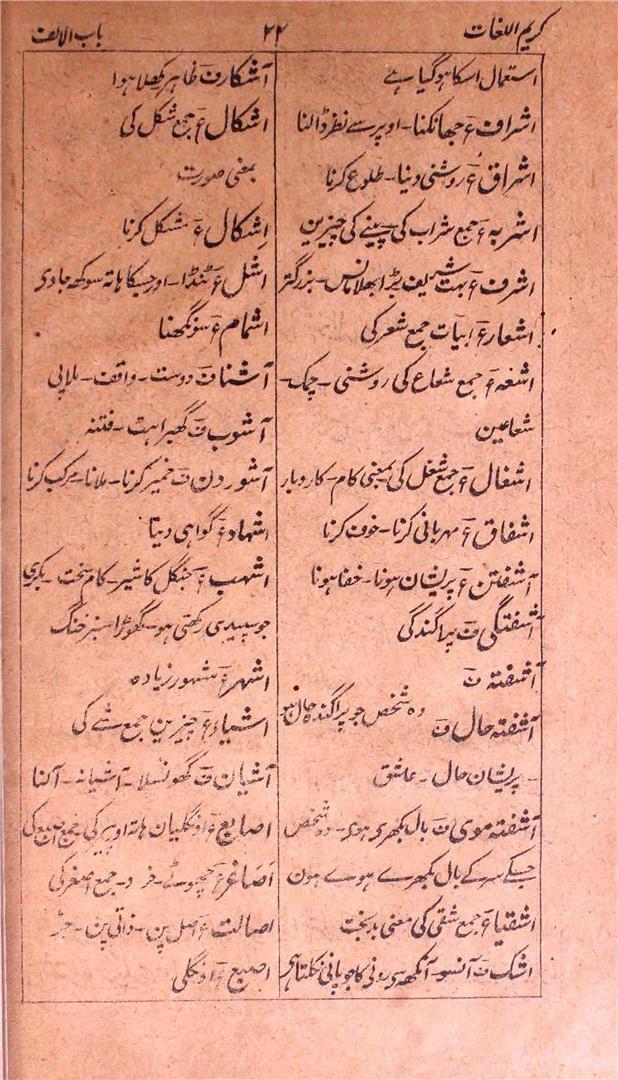 کریم اللغات
۲۲
باب الالف
استعمال اسکا ہو گیا ہے
اشراف ءَ جھانکنا ۔ اوپر سے نظر ڈالنا
اشراق ءَ روشنی دینا ۔ طلوع کرنا
اشربہ ءَ جمع شراب کی پینے کی چیزین
اشرف ءَ بہت شریف بڑا بھلا مانس ۔ بزرگتر
اشعار ءَ ابیات جمع شعر کی
اشعہ ءَ جمع شعاع کی روشنی ۔ چمک ۔
شعاعین
اشغال ءَ جمع شغل کی بمعنی کام ۔ کاروبار
اشفاق ءَ مہربانی کرنا ۔ خوف کرنا
آشفتن ءَ پریشان ہونا ۔ خفا ہونا
آشفتگی فَ پراگندگی
آشفتہ فَ
آشفتہ حال فَ وہ شخص جو پراگندہ حال ہو
۔ پریشان حال ۔ عاشق
آشفتہ موی فَ بال بکھری ہوی ۔ وہ شخص
جسکے سر کے بال بکھرے ہوے ہون
اشقیاء ءَ جمع شقی کی معنی بدبخت
اشک فَ آنسو ۔ آنکھ سی رونی کا جو پانی نکلتا ہی
آشکار فَ ظاہر کھلا ہوا
اشکال ءَ جمع شکل کی
بمعنی صورت
اِشکال ءَ مشکل کرنا
اشل ءَ ٹنڈا ۔ اور جسکا ہاتہ سوکھ جاوی
اشمام ءَ سونگھنا
آشنا فَ دوست ۔ واقف ۔ ملاپی
آشوب فَ گھبراہٹ ۔ فتنہ
آشوردن فَ خمیر کرنا ۔ ملانا ۔ مرکب کرنا
اشہاد ءَ گواہی دینا
اشہب ءَ جنگل کا شیر ۔ کام سخت ۔ بکری
جو سپیدی رکھتی ہو ۔ گھوڑا سبز خنگ
اشہر ءَ مشہور زیادہ
اشیاء ءَ چیزین جمع شے کی
آشیان فَ گھونسلا ۔ آشیانہ ۔ آلنا
اصابع ءَ اونگلیان ہاتہ اوپیر کی جمع اصبع کی
اَصاغر ءَ چھوٹے ۔ خرد ۔ جمع اصغر کی
اصالت ءَ اصل پن ۔ ذاتی پن ۔ جڑ
اصبع ءَ اونگلی